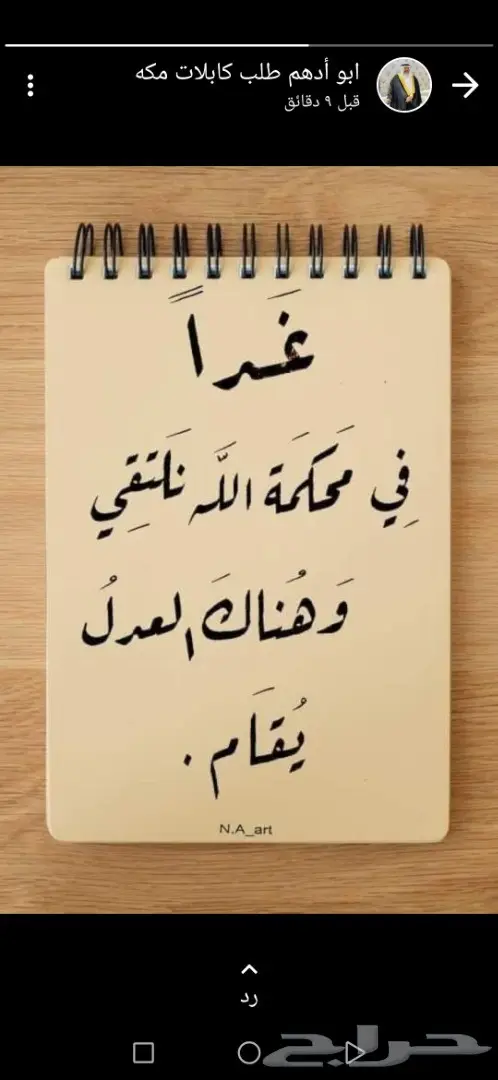 ابو أدهم طلب كابلات مكه
قبل ٩ دقائق
غَداً
فِي مَحكَمَة اللَّه نَلتَقِي
وَهُناكَ العدلُ
يُقَام .
N.A_art
رد
حراج